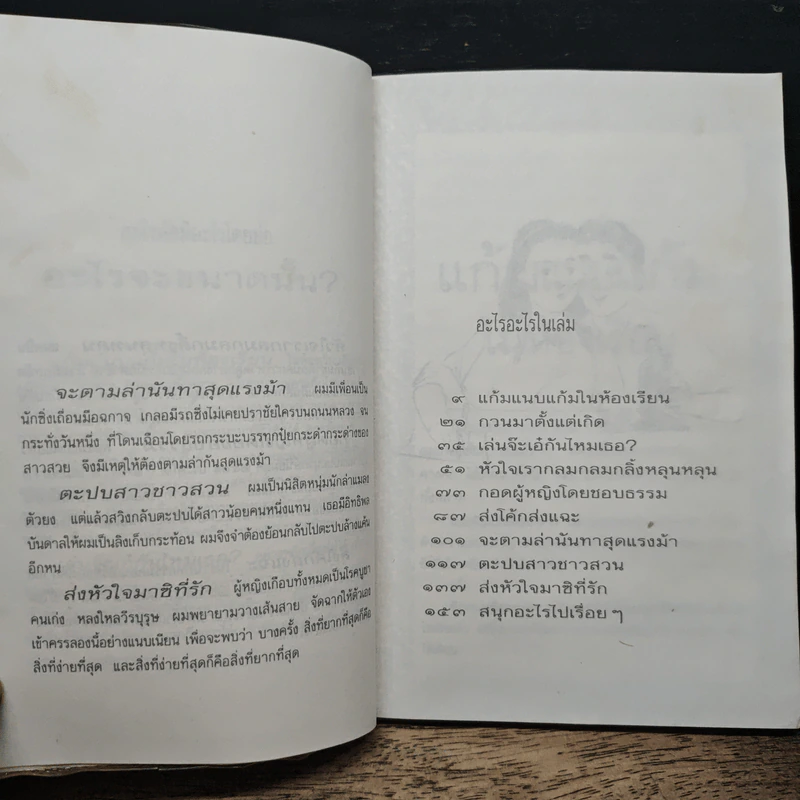 จะตามล่านันทาสุดแรงม้า ผมมีเพื่อนเป็น
นักซิ่งเถื่อนมือฉกาจ เกลอมีรถซึ่งไม่เคยปราชัยใครบนถนนหลวง จน
กระทั่งวันหนึ่ง ที่โดนเฉือนโดยรถกระบะบรรทุกปุ๋ยกระดำกระด่างของ
สาวสวย จึงมีเหตุให้ต้องตามล่ากันสุดแรงม้า
ตะปบสาวชาวสวน ผมเป็นนิสิตหนุ่มนักล่าแมลง
ตัวยง แต่แล้วสวิงกลับตะปบได้สาวน้อยคนหนึ่งแทน เธอมีอิทธิพล
บันดาลให้ผมเป็นลิงเก็บกระท้อน ผมจึงจำต้องย้อนกลับไปตะปบล้างแค้น
อีกหน
ส่งหัวใจมาซิที่รัก ผู้หญิงเกือบทั้งหมดเป็นโรคบูชา
คนเก่ง หลงใหลวีรบุรุษ ผมพยายามวางเส้นสาย จัดฉากให้ตัวเอง
เข้าครรลองนี้อย่างแนบเนียน เพื่อจะพบว่า บางครั้ง สิ่งที่ยากที่สุดก็คือ
สิ่งที่ง่ายที่สุด และสิ่งที่ง่ายที่สุดก็คือสิ่งที่ยากที่สุด
อะไรอะไรในเล่ม
๙ แก้มแนบแก้มในห้องเรียน
๒๑ กวนมาตั้งแต่เกิด
๓๕ เล่นจ๊ะเอ๋กันไหมเธอ?
๕๑ หัวใจเรากลมกลมกลิ้งหลุนหลุน
๗๓ กอดผู้หญิงโดยชอบธรรม
๘๗ ส่งโค้กส่งแฉะ
๑๐๑ จะตามล่านันทาสุดแรงม้า
๑๑๗ ตะปบสาวชาวสวน
๑๓๗ ส่งหัวใจมาซิที่รัก
๑๕๓ สนุกอะไรไปเรื่อย ๆ